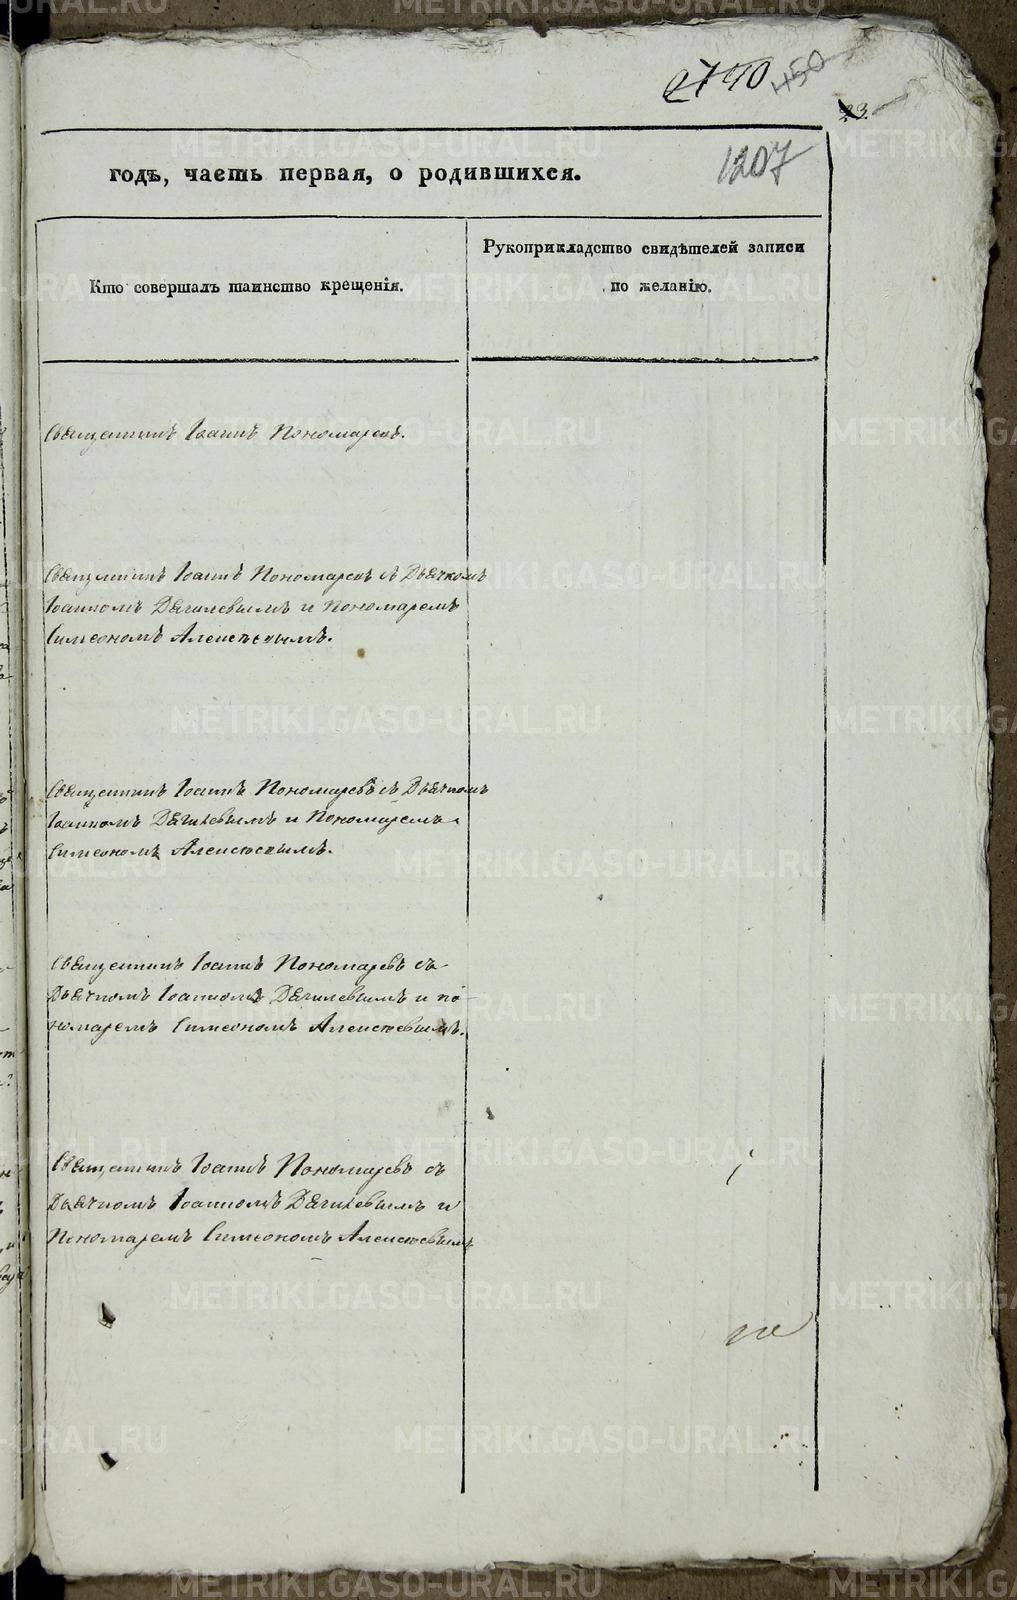 2740 450
23.
1207
годъ, часть первая, о родившихся.
Кто совершалъ таинство крещенія.
Рукоприкладство свидѣтелей записи
по желанію.
Священникъ Іоаннъ Пономаревъ.
Священникъ Іоаннъ Пономаревъ съ Дьячкомъ
Іоанномъ Дягилевымъ и Пономаремъ
Симеономъ Алексѣевымъ.
Священникъ Іоаннъ Пономаревъ съ Дьячкомъ
Іоанномъ Дягилевымъ и Пономаремъ
Симеономъ Алексѣевымъ.
Священникъ Іоаннъ Пономаревъ съ
Дьячкомъ Іоанномъ Дягилевымъ и по-
номаремъ Симеономъ Алексѣевымъ.
Священникъ Іоаннъ Пономаревъ съ
Дьячкомъ Іоанномъ Дягилевымъ и
Пономаремъ Симеономъ Алексѣевымъ
METRIKI.GASO-URAL.RU